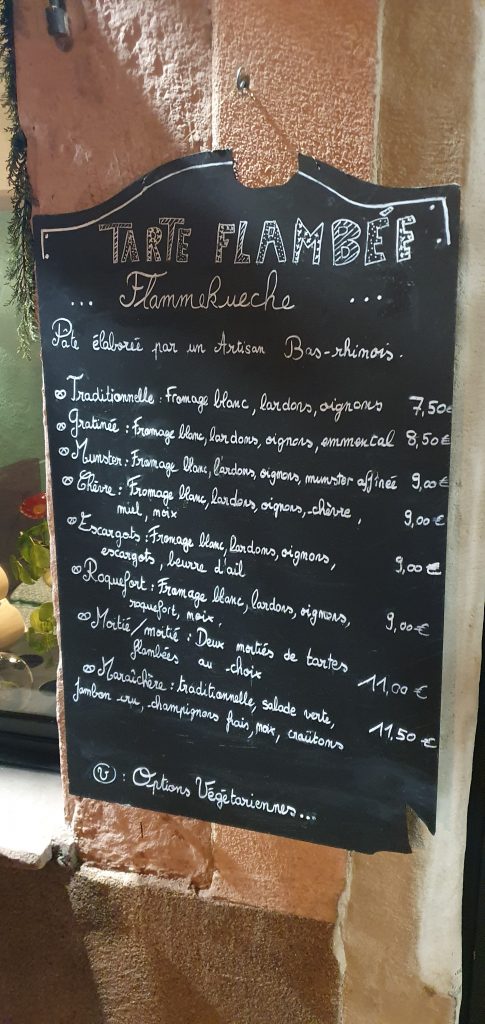 TARTE FLAMBÉE
... Flammekueche ...
Pâte élaborée par un Artisan Bas-rhinois.
Traditionnelle : Fromage blanc, lardons, oignons 7,50€
Gratinée : Fromage blanc, lardons, oignons, emmental 8,50€
Munster : Fromage blanc, lardons, oignons, munster affinée 9,00€
Chèvre : Fromage blanc, lardons, oignons, chèvre,
miel, noix 9,00€
Escargots : Fromage blanc, lardons, oignons,
escargots, beurre d'ail 9,00€
Roquefort : Fromage blanc, lardons, oignons,
roquefort, noix. 9,00€
Moitié/moitié : Deux moitiés de tartes
flambées au choix 11,00€
Maraîchère : traditionnelle, salade verte,
jambon cru, champignons frais, noix, croûtons 11,50€
(v) : Options Végétariennes...